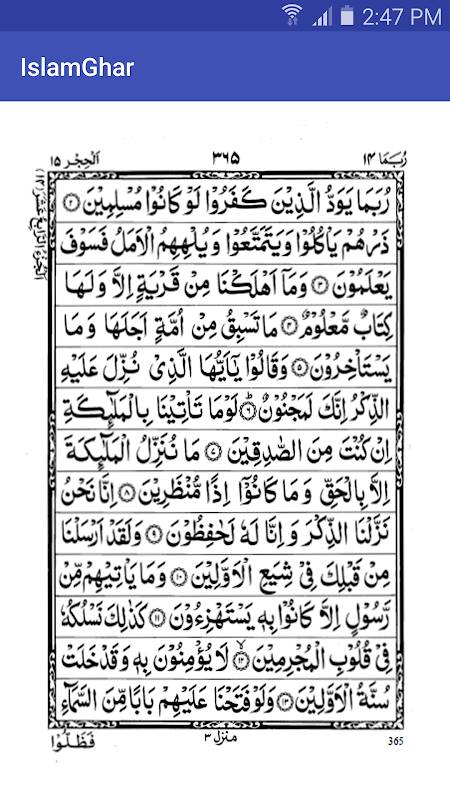 2:47 PM
IslamGhar
رُبَمَا ١٤
٣٦٥
اَلْحِجْر ١٥
اَلْجُزْءُ الرَّابِعَ عَشَرَ (١٤)
رُبَمَا يَوَدُّ الَّذِيْنَ كَفَرُوْا لَوْ كَانُوْا مُسْلِمِيْنَ ۝٢
ذَرْهُمْ يَاْكُلُوْا وَيَتَمَتَّعُوْا وَيُلْهِهِمُ الْاَمَلُ فَسَوْفَ
يَعْلَمُوْنَ ۝٣ وَمَاۤ اَهْلَكْنَا مِنْ قَرْيَةٍ اِلَّا وَلَهَا
كِتَابٌ مَّعْلُوْمٌ ۝٤ مَا تَسْبِقُ مِنْ اُمَّةٍ اَجَلَهَا وَمَا
يَسْتَاْخِرُوْنَ ۝٥ وَقَالُوْا يٰۤاَيُّهَا الَّذِيْ نُزِّلَ عَلَيْهِ
الذِّكْرُ اِنَّكَ لَمَجْنُوْنٌ ۝٦ؕ لَوْمَا تَاْتِيْنَا بِالْمَلٰٓئِكَةِ
اِنْ كُنْتَ مِنَ الصّٰدِقِيْنَ ۝٧ مَا نُنَزِّلُ الْمَلٰٓئِكَةَ
اِلَّا بِالْحَقِّ وَمَا كَانُوْۤا اِذًا مُّنْظَرِيْنَ ۝٨ اِنَّا نَحْنُ
نَزَّلْنَا الذِّكْرَ وَاِنَّا لَهٗ لَحٰفِظُوْنَ ۝٩ وَلَقَدْ اَرْسَلْنَا
مِنْ قَبْلِكَ فِيْ شِيَعِ الْاَوَّلِيْنَ ۝١٠ وَمَا يَاْتِيْهِمْ مِّنْ
رَّسُوْلٍ اِلَّا كَانُوْا بِهٖ يَسْتَهْزِءُوْنَ ۝١١ كَذٰلِكَ نَسْلُكُهٗ
فِيْ قُلُوْبِ الْمُجْرِمِيْنَ ۝١٢ۙ لَا يُؤْمِنُوْنَ بِهٖ وَقَدْ خَلَتْ
سُنَّةُ الْاَوَّلِيْنَ ۝١٣ وَلَوْ فَتَحْنَا عَلَيْهِمْ بَابًا مِّنَ السَّمَآءِ
منزل ٣
فَظَلُّوْا
365